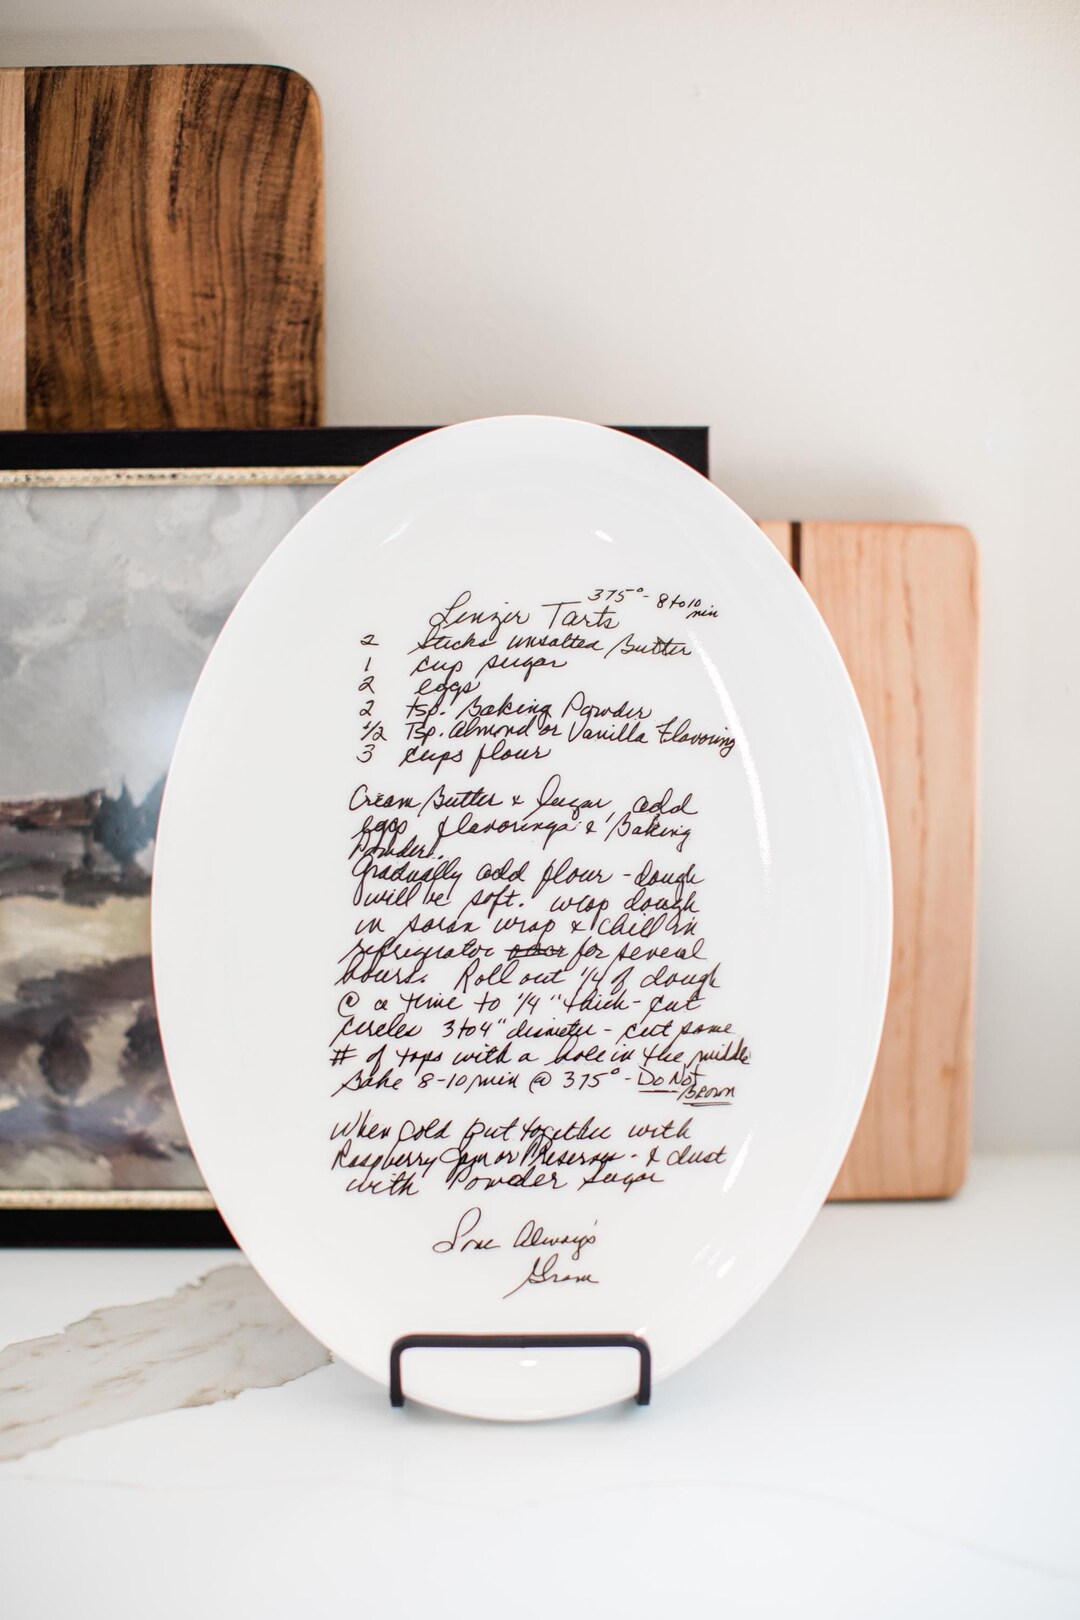 375° - 8 to 10 min
Linzir Tarts
2 Sticks unsalted Butter
1 cup sugar
2 eggs
2 tsp. Baking Powder
1/2 Tsp. Almond or Vanilla Flavoring
3 cups flour
Cream Butter & Sugar, add
eggs flavorings & Baking
Powder.
Gradually add flour - dough
will be soft. wrap dough
in saran wrap & chill in
refrigerator for several
hours. Roll out 1/4 of dough
@ a time to 1/4" thick - cut
circles 3 to 4" diameter - cut same
# of tops with a hole in the middle
Bake 8-10 min @ 375° - Do Not
Brown
When Cold put together with
Raspberry Jam or Preserves - & dust
with Powder Sugar
Love Always
Gram